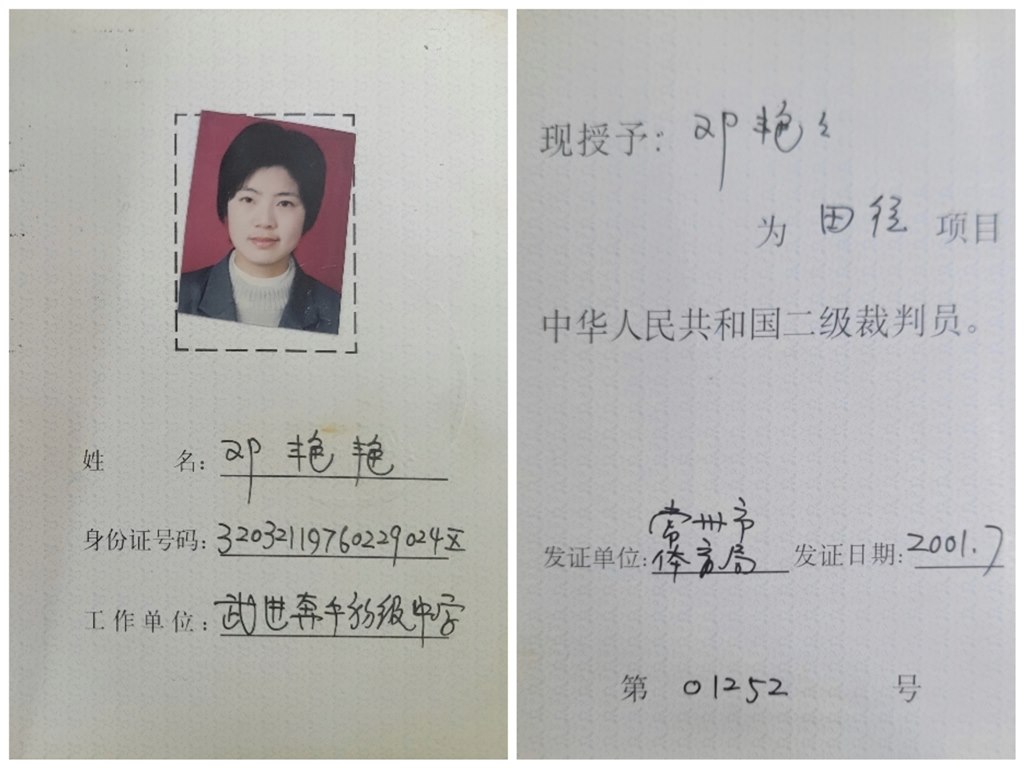 姓名：邓艳艳
身份证号码：32032119760229024区
工作单位：武进奔牛初级中学
现授予：邓艳々
为 田径 项目
中华人民共和国二级裁判员。
发证单位：常州市
体育局 发证日期：2001.7
第 01252 号